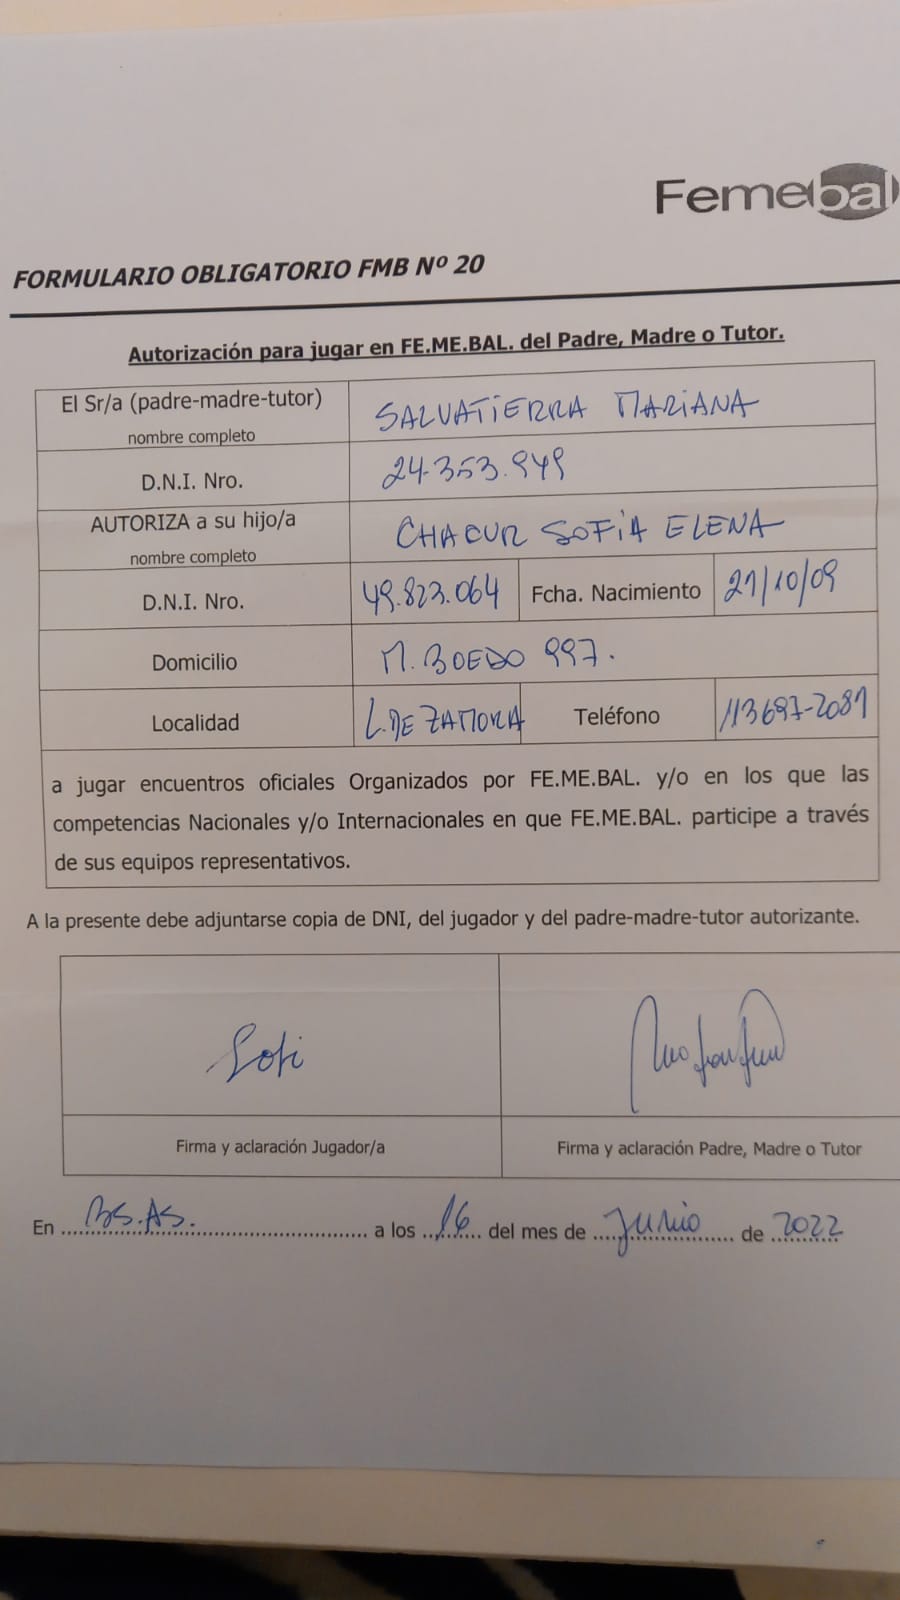 Femebal
FORMULARIO OBLIGATORIO FMB Nº 20
Autorización para jugar en FE.ME.BAL. del Padre, Madre o Tutor.
El Sr/a (padre-madre-tutor) SALVATIERRA MARIANA
nombre completo
D.N.I. Nro. 24.353.949
AUTORIZA a su hijo/a CHACUR SOFIA ELENA
nombre completo
D.N.I. Nro. 49.823.064 Fcha. Nacimiento 21/10/09
Domicilio M. BOEDO 997.
Localidad L. DE ZAMORA Teléfono 113697-2081
a jugar encuentros oficiales Organizados por FE.ME.BAL. y/o en los que las
competencias Nacionales y/o Internacionales en que FE.ME.BAL. participe a través
de sus equipos representativos.
A la presente debe adjuntarse copia de DNI, del jugador y del padre-madre-tutor autorizante.
Sofi
Firma y aclaración Jugador/a Firma y aclaración Padre, Madre o Tutor
En BS.AS. a los 16 del mes de Junio de 2022